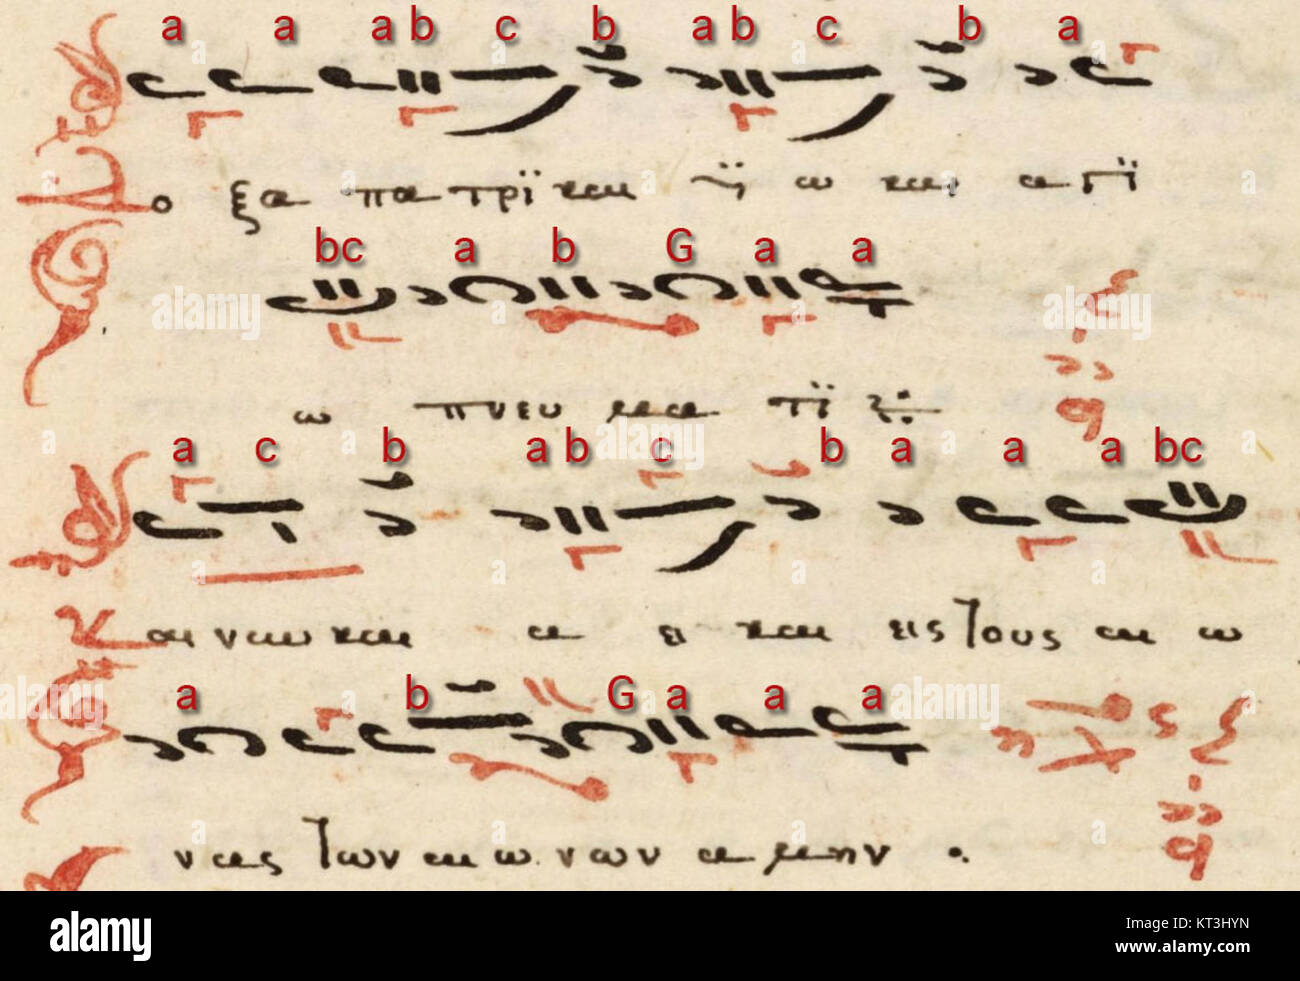 a a a b c b a b c b a
Δοξα πατρϊ και ϋϊω και αγϊ
bc a b G a a
ω πνευ μα τϊ
a c b a b c b a a a bc
Και νυν και α ει και εις τους αι ω
a b G a a a
νας των αι ω νων α μην .
alamy
Image ID: KT3HYN
www.alamy.com